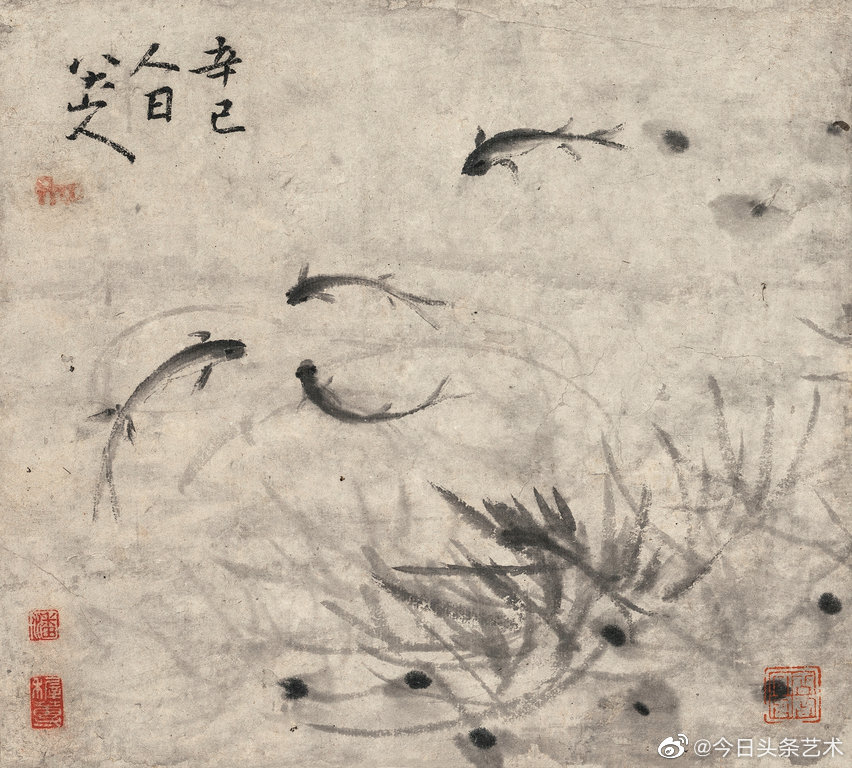 辛巳
人日
八大山人
潘
@今日头条艺术